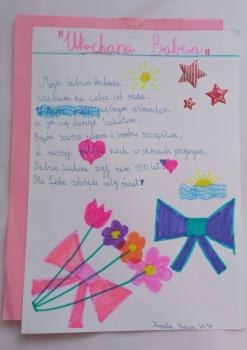 "Ukochana Babcia"
Moja babcia kochana
czekam na ciebie od rana.
pięknym uśmiechem,
a ja cię darzę bukietem.
Bądź zawsze zdrowa i bardzo szczęśliwa,
a naszej niech w sercach przybywa.
Babciu kochana żyj nam 100 lat!
Dla Ciebie zdobędę cały świat!